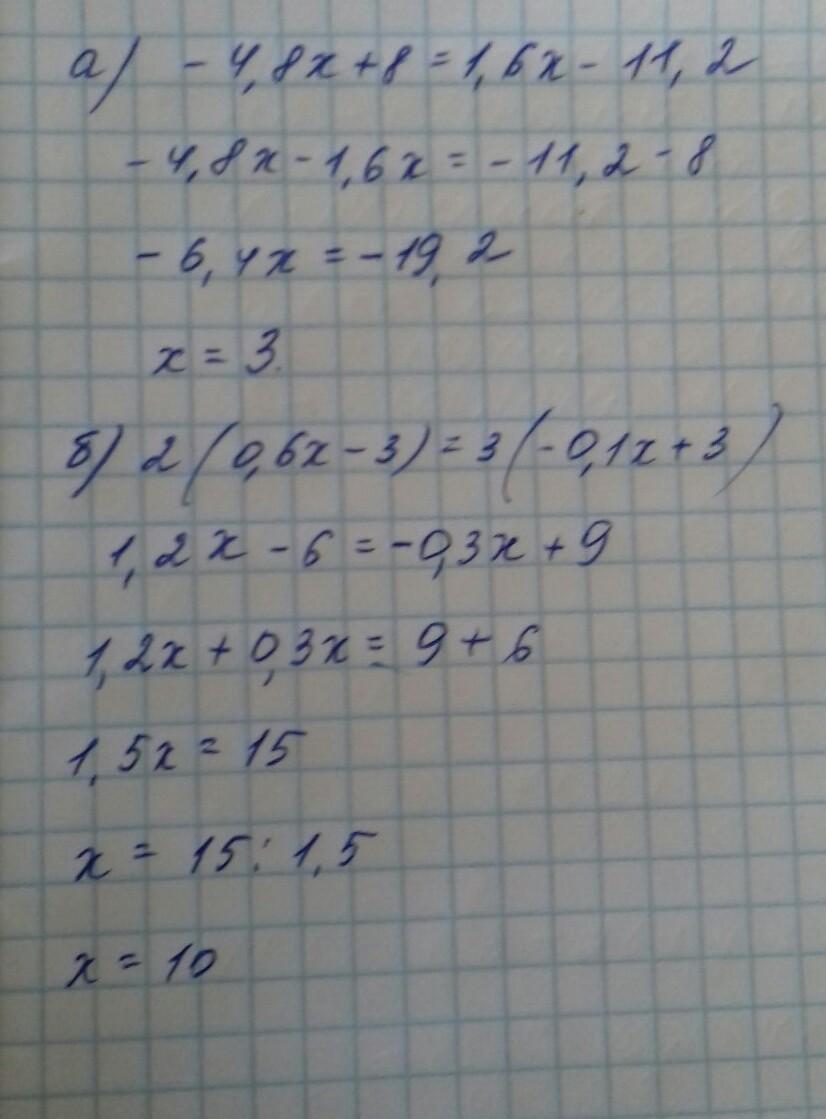 а) - 4,8x + 8 = 1,6x - 11,2
- 4,8x - 1,6x = - 11,2 - 8
- 6,4x = - 19,2
x = 3.
б) 2(0,6x - 3) = 3(-0,1x + 3)
1,2x - 6 = -0,3x + 9
1,2x + 0,3x = 9 + 6
1,5x = 15
x = 15 : 1,5
x = 10